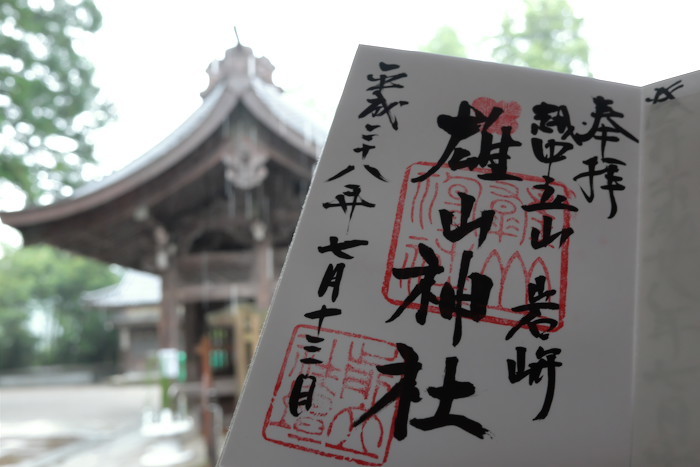 奉拝
越中立山 岩峅
雄山神社
平成二十八年 七月十三日